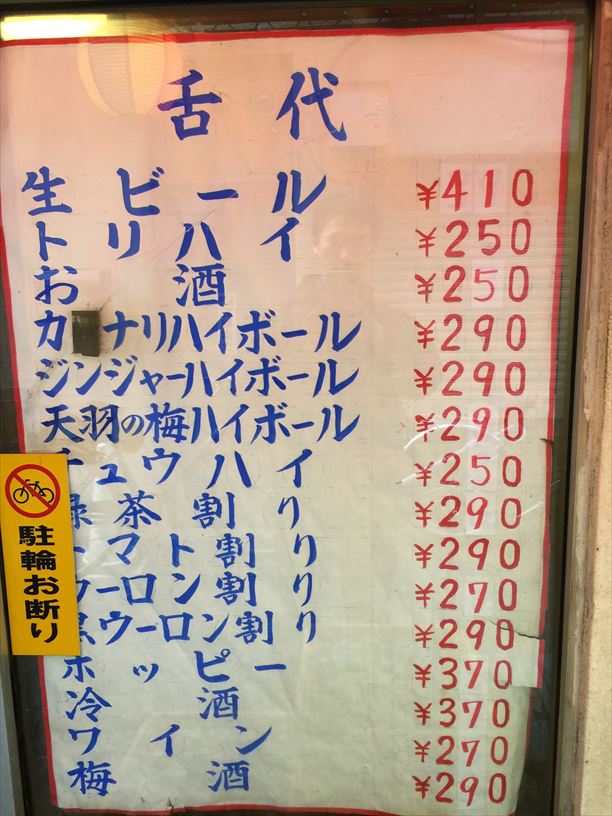 舌代
生ビール ¥410
トリハイ ¥250
お酒 ¥250
カナリハイボール ¥290
ジンジャーハイボール ¥290
天羽の梅ハイボール ¥290
チュウハイ ¥250
緑茶割り ¥290
トマト割り ¥290
ウーロン割り ¥270
黒ウーロン割り ¥290
ホッピー ¥370
冷酒 ¥370
ワイン ¥270
梅酒 ¥290
駐輪お断り